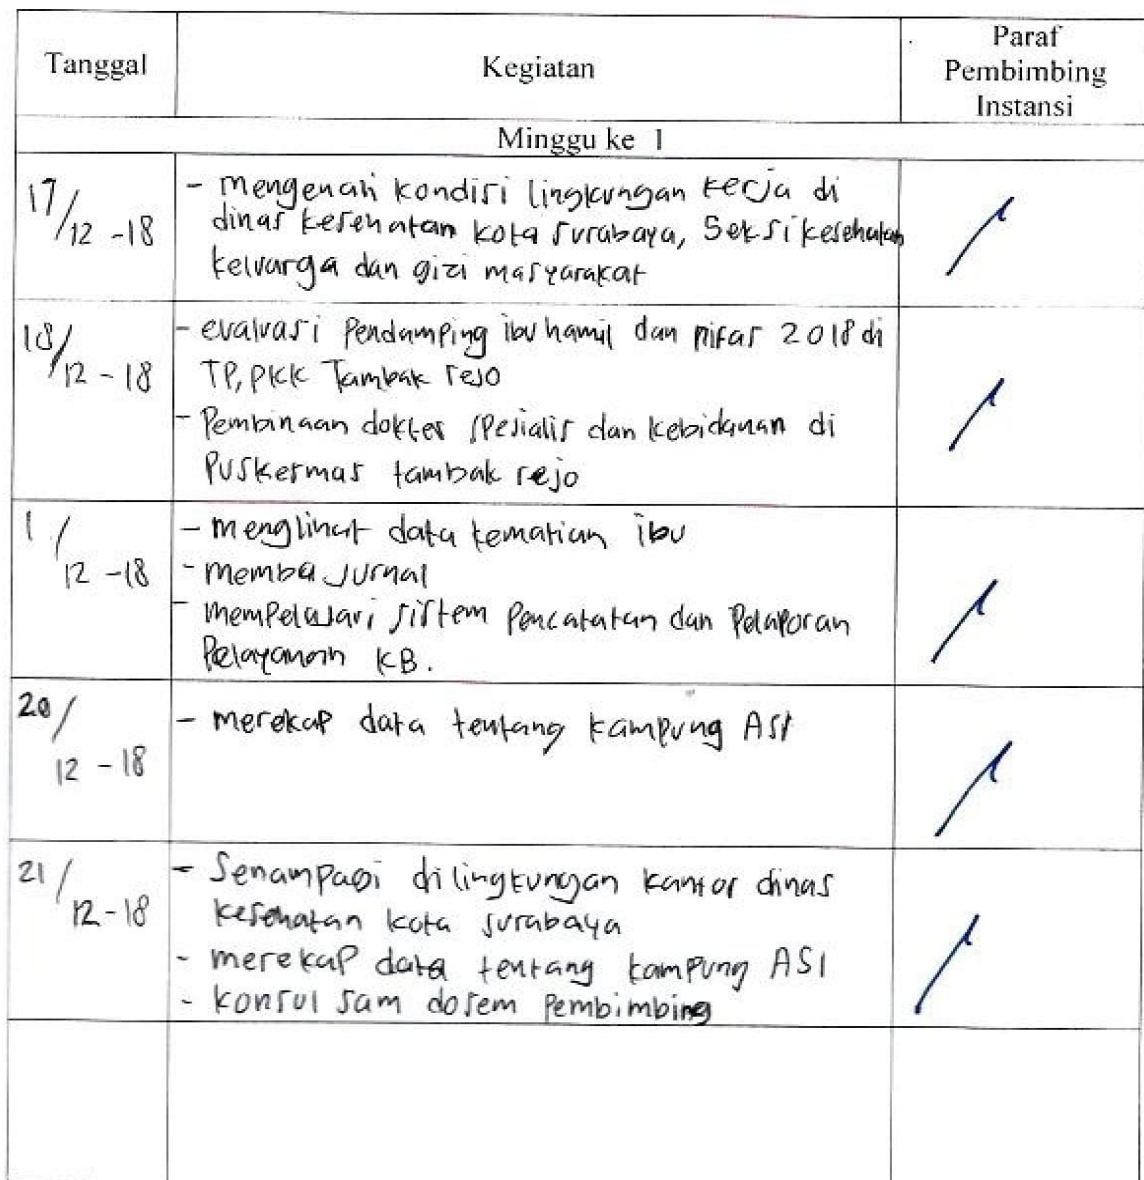 Tanggal
Kegiatan
Paraf
Pembimbing
Instansi
Minggu ke 1
17/12-18
- mengenali kondisi lingkungan kerja di
dinas kesehatan kota surabaya, Seksi kesehatan
keluarga dan gizi masyarakat
18/12-18
- evaluasi Pendamping ibu hamil dan nifas 2018 di
TP, PKK Tambak rejo
- Pembinaan dokter spesialis dan kebidanan di
Puskesmas tambak rejo
1 /12-18
- menglihat data kematian ibu
- memba Jurnal
- mempelajari sistem Pencatatan dan Pelaporan
Pelayanan KB.
20/12-18
- merekap data tentang kampung ASI
21/12-18
- Senampagi dilingkungan kantor dinas
kesehatan kota surabaya
- merekap data tentang kampung ASI
- konsul sam dosem Pembimbing